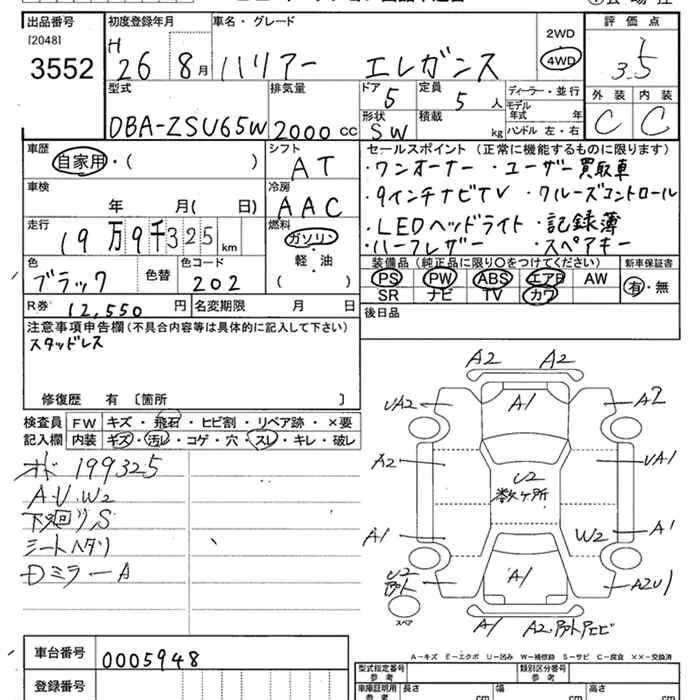 出品番号 初度登録年月 車名・グレード 評価点
[2048]
3552
H 26 8月 ハリアー エレガンス
2WD
4WD
3.5
型式 排気量 ドア 定員 ディーラー・並行
5 5人
モデル年式 年式
外装 内装
C C
DBA-ZSU65W 2000 cc
形状 積載
SW kg
ハンドル 左・右
車歴 シフト セールスポイント (正常に機能するものに限ります)
自家用・( ) AT
・ワンオーナー ・ユーザー買取車
車検 冷房
・9インチナビTV ・クルーズコントロール
年 月( 日) AAC
・LEDヘッドライト ・記録簿
走行 燃料
19万9千325km ガソリン
・ハーフレザー ・スペアキー
軽・油
( )
色 色替 色コード
ブラック 202
装備品 (純正品に限り○をつけてください) 新車保証書
PS PW ABS エアB AW 有・無
SR ナビ TV カワ
R券 12,550円 名変期限 月 日
後日品
注意事項申告欄 (不具合内容等は具体的に記入して下さい)
スタッドレス
修復歴 有 〔箇所 〕
検査員 記入欄
FW キズ・飛石・ヒビ割・リペア跡・×要
内装 キズ・汚レ・コゲ・穴・スレ・キレ・破レ
オド 199325
A・U・W2
下廻りS
シートヘタリ
Dミラ－A
A2 A2
UA2 A1 A2
A2 U2 UA1
数ヶ所
A1 W2 A1
U2 A1 A2U1
A1 A2
スペア
A－キズ E－エクボ U－凹み W－補修跡 S－サビ C－腐食 ××－交換済
車台番号 0005948
登録番号
型式指定番号 参考 類別区分番号 参考
車庫証明用 参考 長さ cm 幅 cm 高さ cm